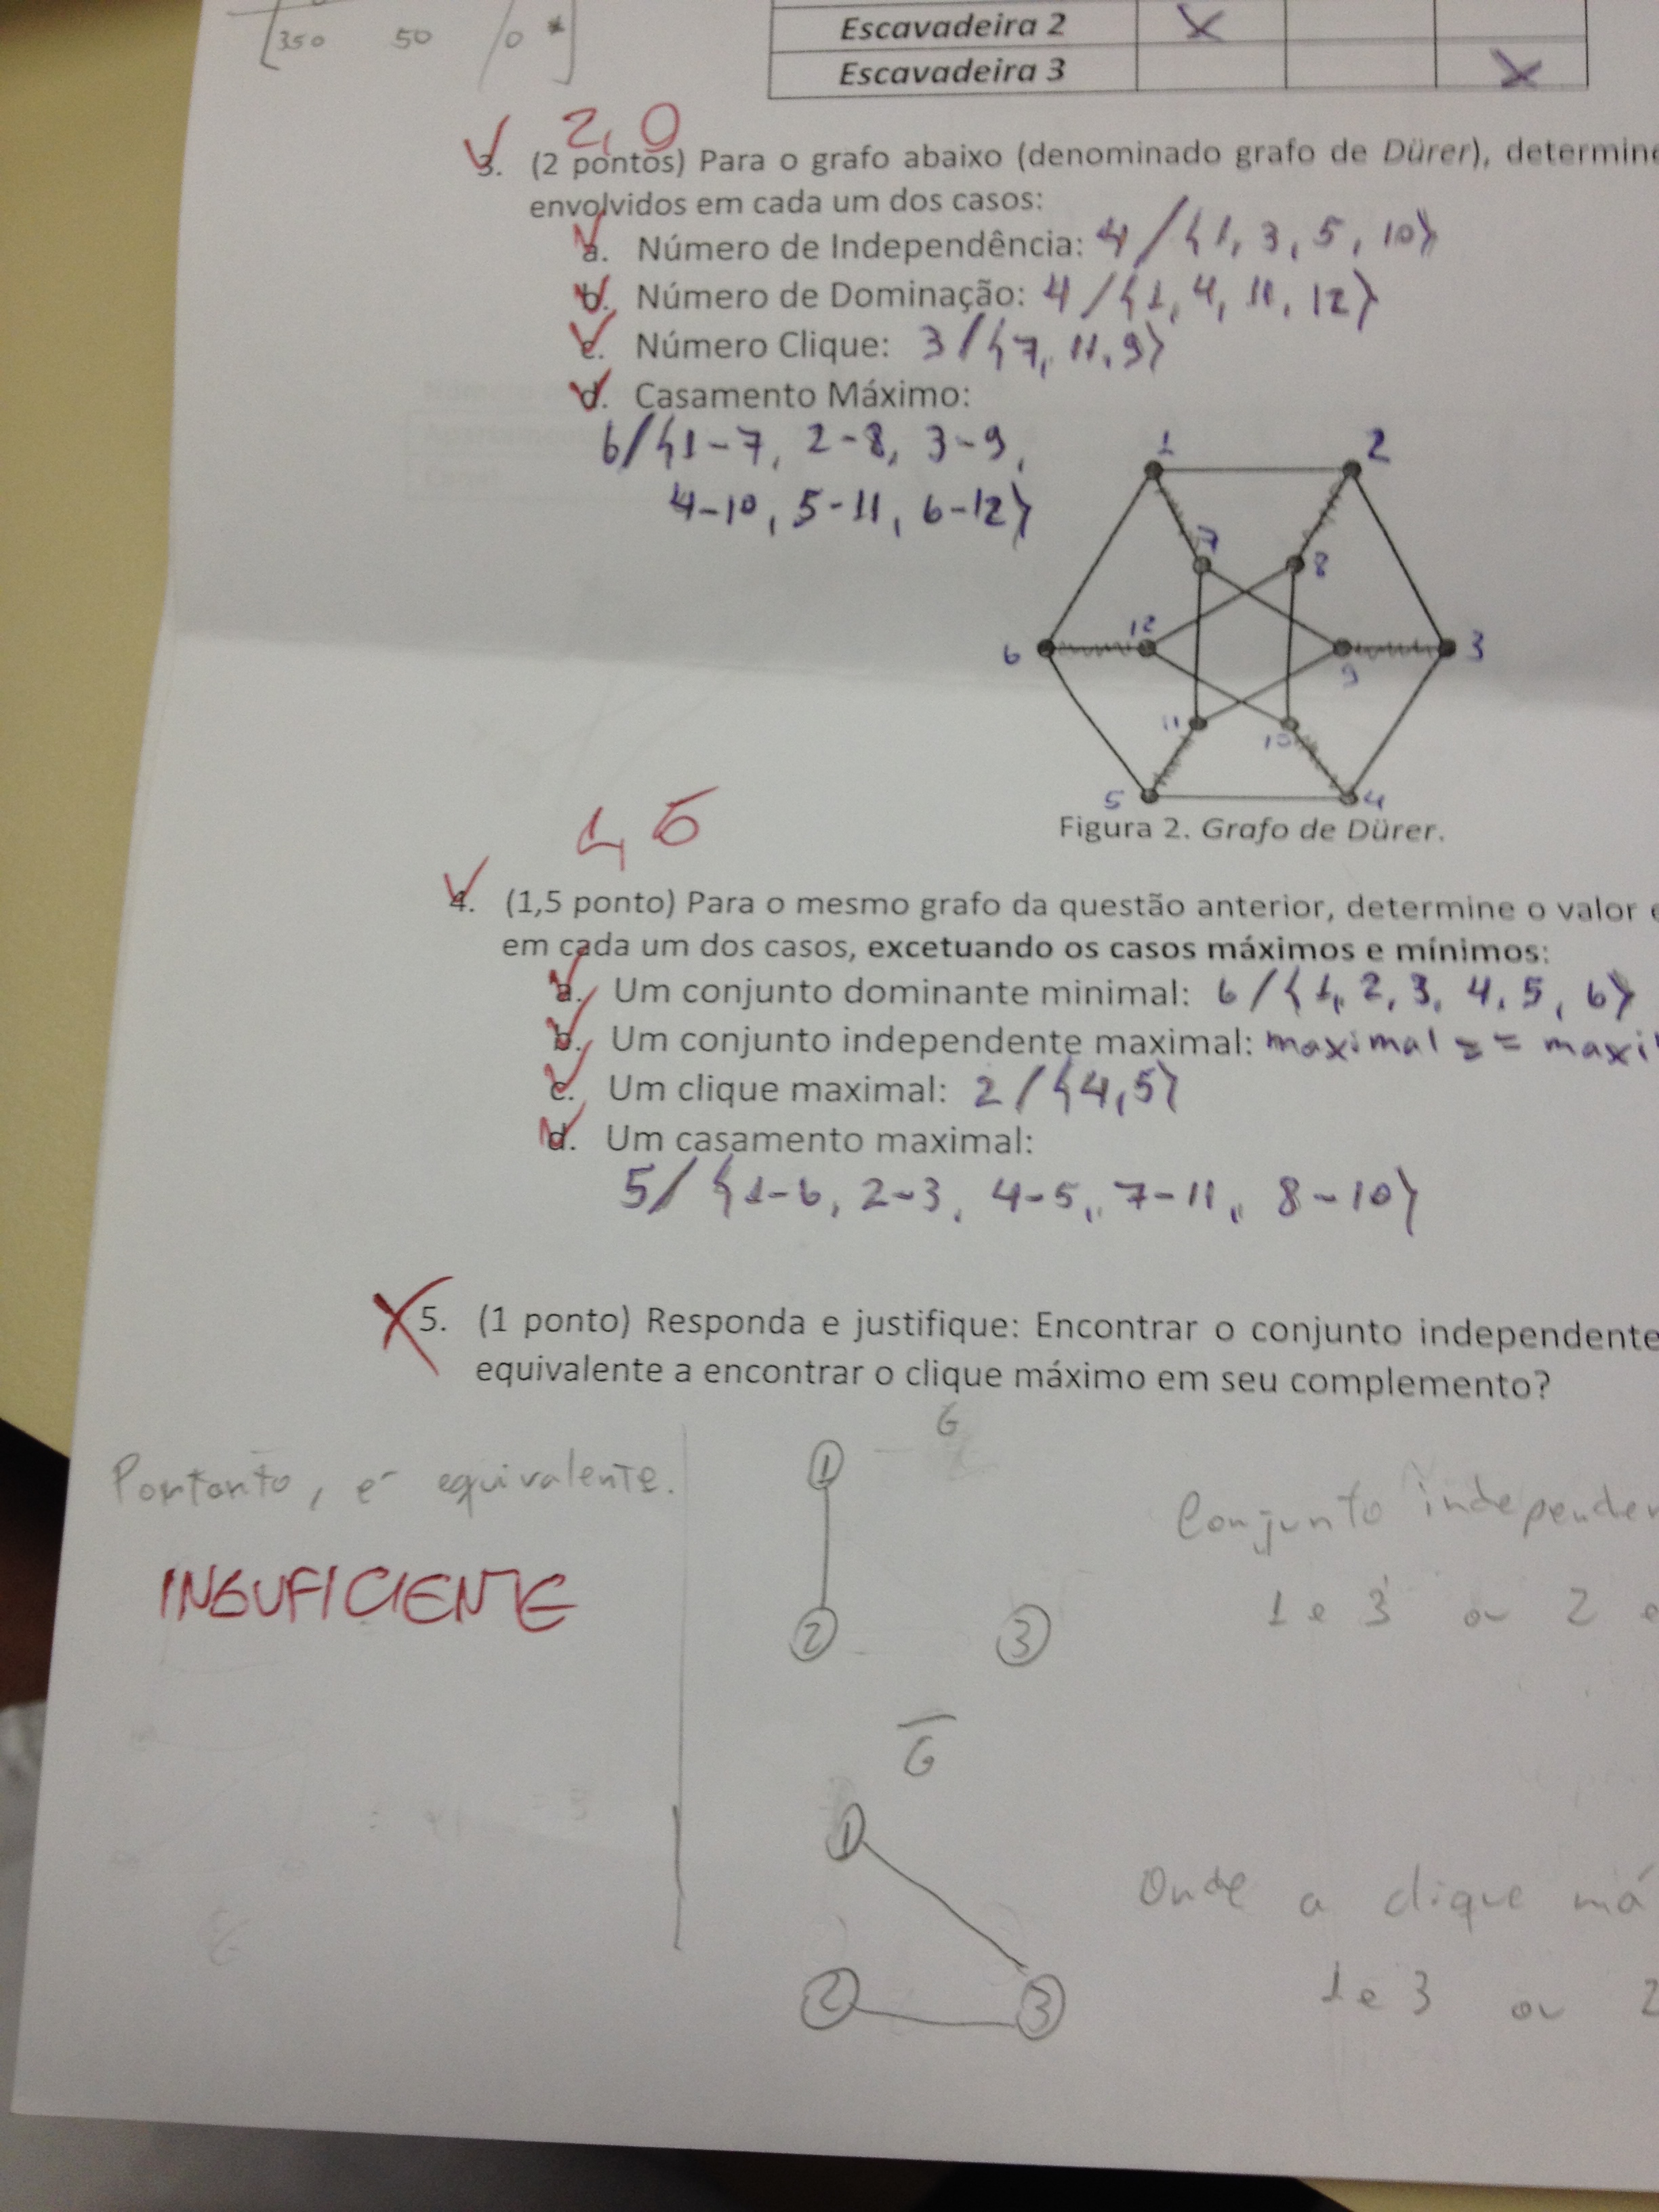 [350 50 10 *]
Escavadeira 2 X
Escavadeira 3 X
2,0
3. (2 pontos) Para o grafo abaixo (denominado grafo de Dürer), determine
envolvidos em cada um dos casos:
a. Número de Independência: 4/{1, 3, 5, 10}
b. Número de Dominação: 4/{1, 4, 11, 12}
c. Número Clique: 3/{7, 11, 9}
d. Casamento Máximo:
6/{1-7, 2-8, 3-9,
4-10, 5-11, 6-12}
1 2
7 8
6 12 9 3
11 10
5 4
Figura 2. Grafo de Dürer.
1,5
4. (1,5 ponto) Para o mesmo grafo da questão anterior, determine o valor
em cada um dos casos, excetuando os casos máximos e mínimos:
a. Um conjunto dominante minimal: 6/{1, 2, 3, 4, 5, 6}
b. Um conjunto independente maximal: maximal == maxi
c. Um clique maximal: 2/{4,5}
d. Um casamento maximal:
5/{1-6, 2-3, 4-5, 7-11, 8-10}
5. (1 ponto) Responda e justifique: Encontrar o conjunto independente
equivalente a encontrar o clique máximo em seu complemento?
G
Portanto, é equivalente.
1
Conjunto independen
INSUFICIENTE
1 e 3 ou 2 e
2 3
G
1
Onde a clique má
1 e 3 ou 2
2 3